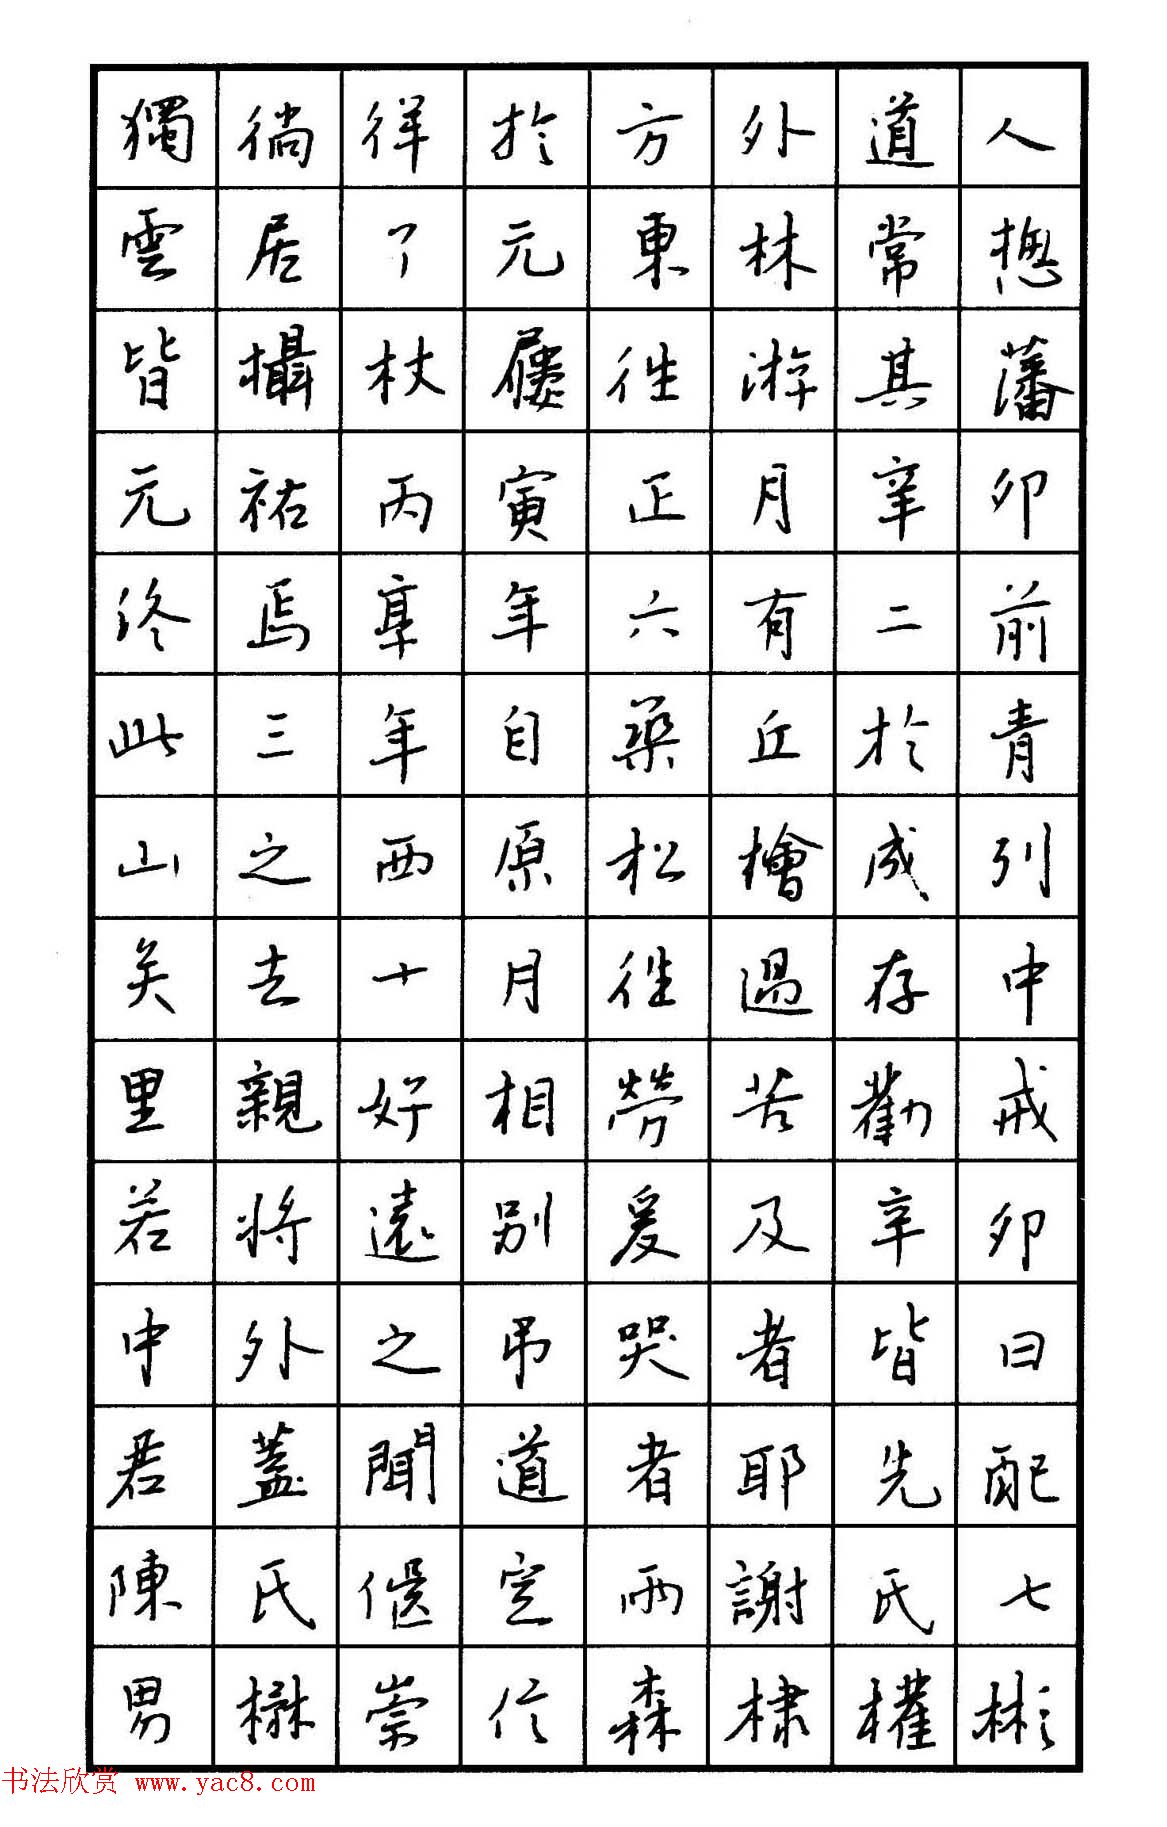 獨徜徉於方外道人
雲居了元東林常揔
皆攝杖屨往游其藩
元祐丙寅正月辛卯
終焉享年六有二前
此三年自築丘於青
山之西原松檜成列
矣去十月往過存中
里親好相勞苦勸戒
若將遠別爰及辛卯
中外之吊哭者皆曰
君蓋聞道者耶先配
陳氏偃室兩謝氏七
男楙崇信森棣權彬
书法欣赏 www.yac8.com